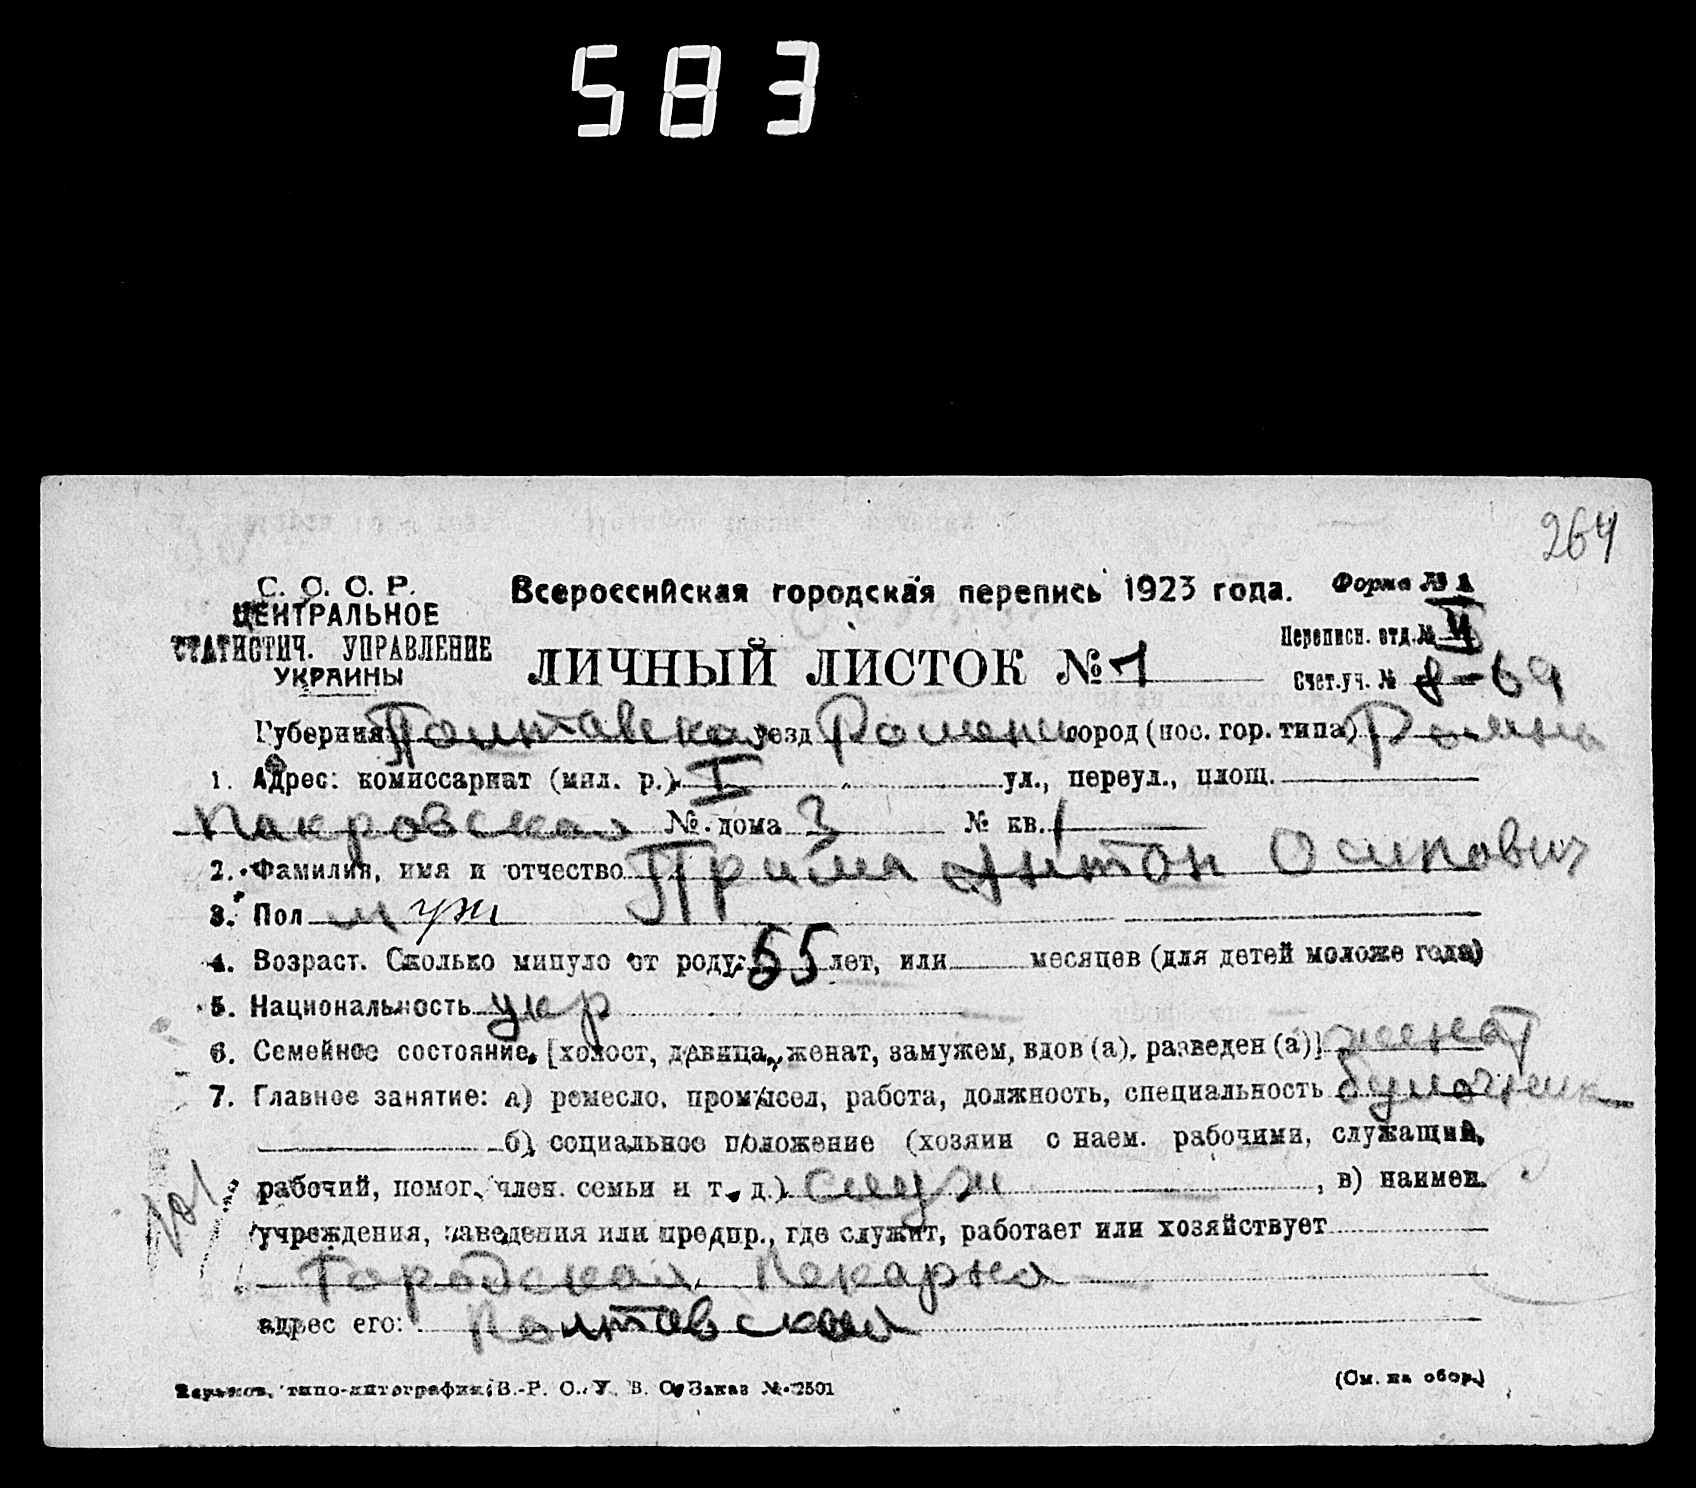 583
264
С. С. С. Р.
ЦЕНТРАЛЬНОЕ
СТАТИСТИЧ. УПРАВЛЕНИЕ
УКРАИНЫ
Всероссийская городская перепись 1923 года.
Форма № 1
Переписн. отд. № VI
ЛИЧНЫЙ ЛИСТОК № 1
Счет.уч. № 8-69
Губерния Полтавская уезд Ромени город (пос. гор. типа) Ромны
1. Адрес: комиссариат (мил. р.) I ул., переул., площ.
Покровская № дома 3 № кв. 1
2. Фамилия, имя и отчество Прийма Антон Осипович
3. Пол муж
4. Возраст. Сколько минуло от роду: 55 лет, или месяцев (для детей моложе года)
5. Национальность укр
6. Семейное состояние, [холост, девица, женат, замужем, вдов (а), разведен (а)] женат
7. Главное занятие: а) ремесло, промысел, работа, должность, специальность булочник
б) социальное положение (хозяин с наем. рабочими, служащий,
рабочий, помог. член. семьи и т. д.) служ , в) наимен.
учреждения, заведения или предпр., где служит, работает или хозяйствует
Городская Пекарня
адрес его: Полтавская
Харьков, типо-литография В.-Р. О. У. В. О. Заказ № 2501
(См. на обор.)